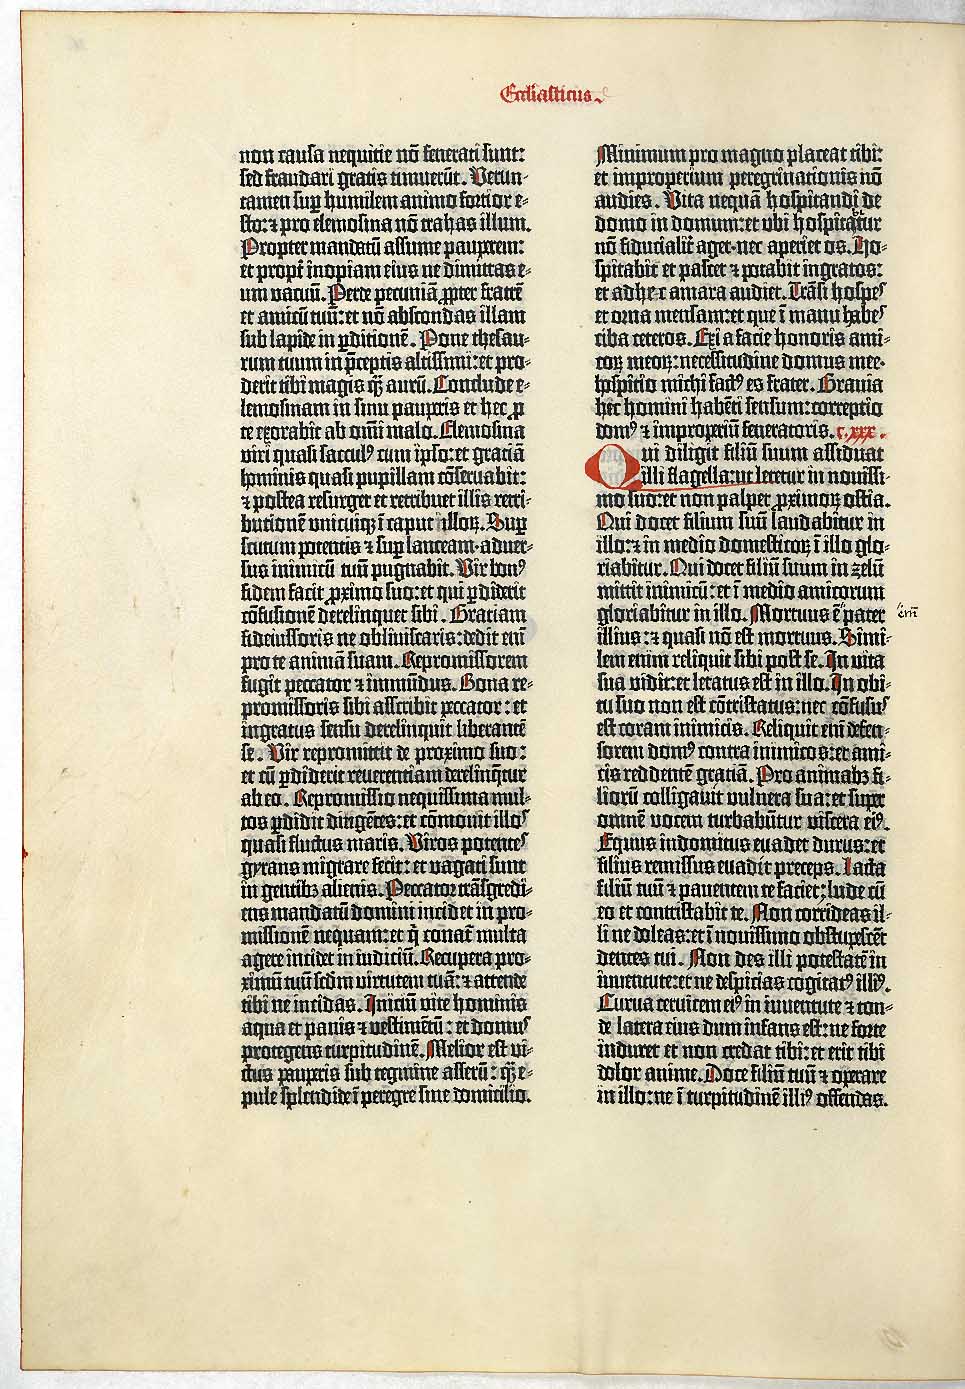 Ecclīasticus.
non causa nequitie nō fenerati sunt:
sed fraudari gratis timuerūt. Verun-
tamen sup̱ humilem animo fortior e-
sto: ⁊ pro elemosina nō trahas illum.
Propter mandatū assume pauperem:
et propt̄ inopiam eius ne dimittas e-
um vacuū. Perde pecuniā ꝓpter fratrē
et amicū tuū: et nō abscondas illam
sub lapide in ꝑditionē. Pone thesau-
rum tuum in p̄ceptis altissimi: et pro-
derit tibi magis q̄ꝫ aurū. Conclude e-
lemosinam in sinu pauperis et hec ꝓ
te exorabit ab omī malo. Elemosina
viri quasi saccul⁹ cum ip̄so: et gratiā
hominis quasi pupillam cōseruabit:
⁊ postea resurget et retribuet illis retri-
butionē vnicuiqꝫ ī caput illoꝝ. Sup̱
scutum potentis ⁊ sup̱ lanceam· aduer-
sus inimicū tuū pugnabit. Vir bon⁹
fidem facit ꝓximo suo: et qui ꝑdiderit
cōfusionē derelinquet sibi. Graciam
fideiussoris ne obliuiscaris: dedit eī
pro te animā suam. Repromissorem
fugit peccator ⁊ immūdus. Bona re-
promissoris sibi asscribit peccator: et
ingratus sensu derelinquit liberantē
se. Vir repromittit de proximo suo:
et cū ꝑdiderit reuerentiam derelinq̄tur
ab eo. Repromissio nequissima mul-
tos ꝑdidit dirigētes: et cōmouit illo⁹
quasi fluctus maris. Viros potente⁹
gyrans migrare fecit: et vagati sunt
in gentibꝫ alienis. Peccator trāsgredi-
ens mandatū domini incidet in pro-
missionē nequam: et q̄ conat̄ multa
agere incidet in iudiciū. Recupera pro-
ximū tuū scd̄m virtutem tuā: ⁊ attende
tibi ne incidas. Iniciū vite hominis
aqua et panis ⁊ vestimētū: et domus
protegens turpitudinē. Melior est vi-
ctus pauperis sub tegmine asserū: q̄ꝫ e-
pule splendide ī peregre sine domicilio.
Minimum pro magno placeat tibi:
et improperium peregrinationis nō
audies. Vita nequā hospitandi de
domo in domum: et vbi hospitat̄ur
nō fiducialit̄ aget· nec aperiet os. Ho-
spitabit et pascet ⁊ potabit ingratos:
et adhec amara audiet. Trāsi hospe⁹
et orna mensam: et que ī manu habe⁹
ciba ceteros. Exi a facie honoris ami-
coꝝ meoꝝ: necessitudine domus mee·
hospitio michi fact⁹ es frater. Grauia
hec homini habēti sensum: correptio
dom⁹ ⁊ improperiū feneratoris. c. xxx.
Qui diligit filiū suum assiduat
illi flagella: ut letetur in nouissi-
mo suo: et non palpet ꝓximoꝝ ostia.
Qui docet filium suū laudabitur in
illo: ⁊ in medio domesticoꝝ ī illo glo-
riabitur. Qui docet filiū suum in zelū
mittit inimicū: et ī medio amicorum
gloriabitur in illo. Mortuus ē pater
illius: ⁊ quasi nō est mortuus. Simi-
lem enim reliquit sibi post se. In vita
sua vidit: et letatus est in illo. In obi-
tu suo non est cōtristatus: nec cōfusus
est coram inimicis. Reliquit eī defen-
sorem dom⁹ contra inimicos: et ami-
cis reddentē gratiā. Pro animabꝫ fi-
liorū colligauit vulnera sua: et super
omnē vocem turbabūtur viscera ei⁹.
Equus indomitus euadet durus: et
filius remissus euadet preceps. Lacta
filiū tuū ⁊ pauentem te faciet: lude cū
eo et contristabit te. Non corrideas il-
li ne doleas: et ī nouissimo obstupescēt
dentes tui. Non des illi potestatē in
iuuentute: et ne despicias cogitat⁹ illi⁹.
Curua ceruicem ei⁹ in iuuentute ⁊ tun-
de latera eius dum infans est: ne forte
induret et non credat tibi: et erit tibi
dolor anime. Doce filiū tuū ⁊ operare
in illo: ne ī turpitudinē illi⁹ offendas.